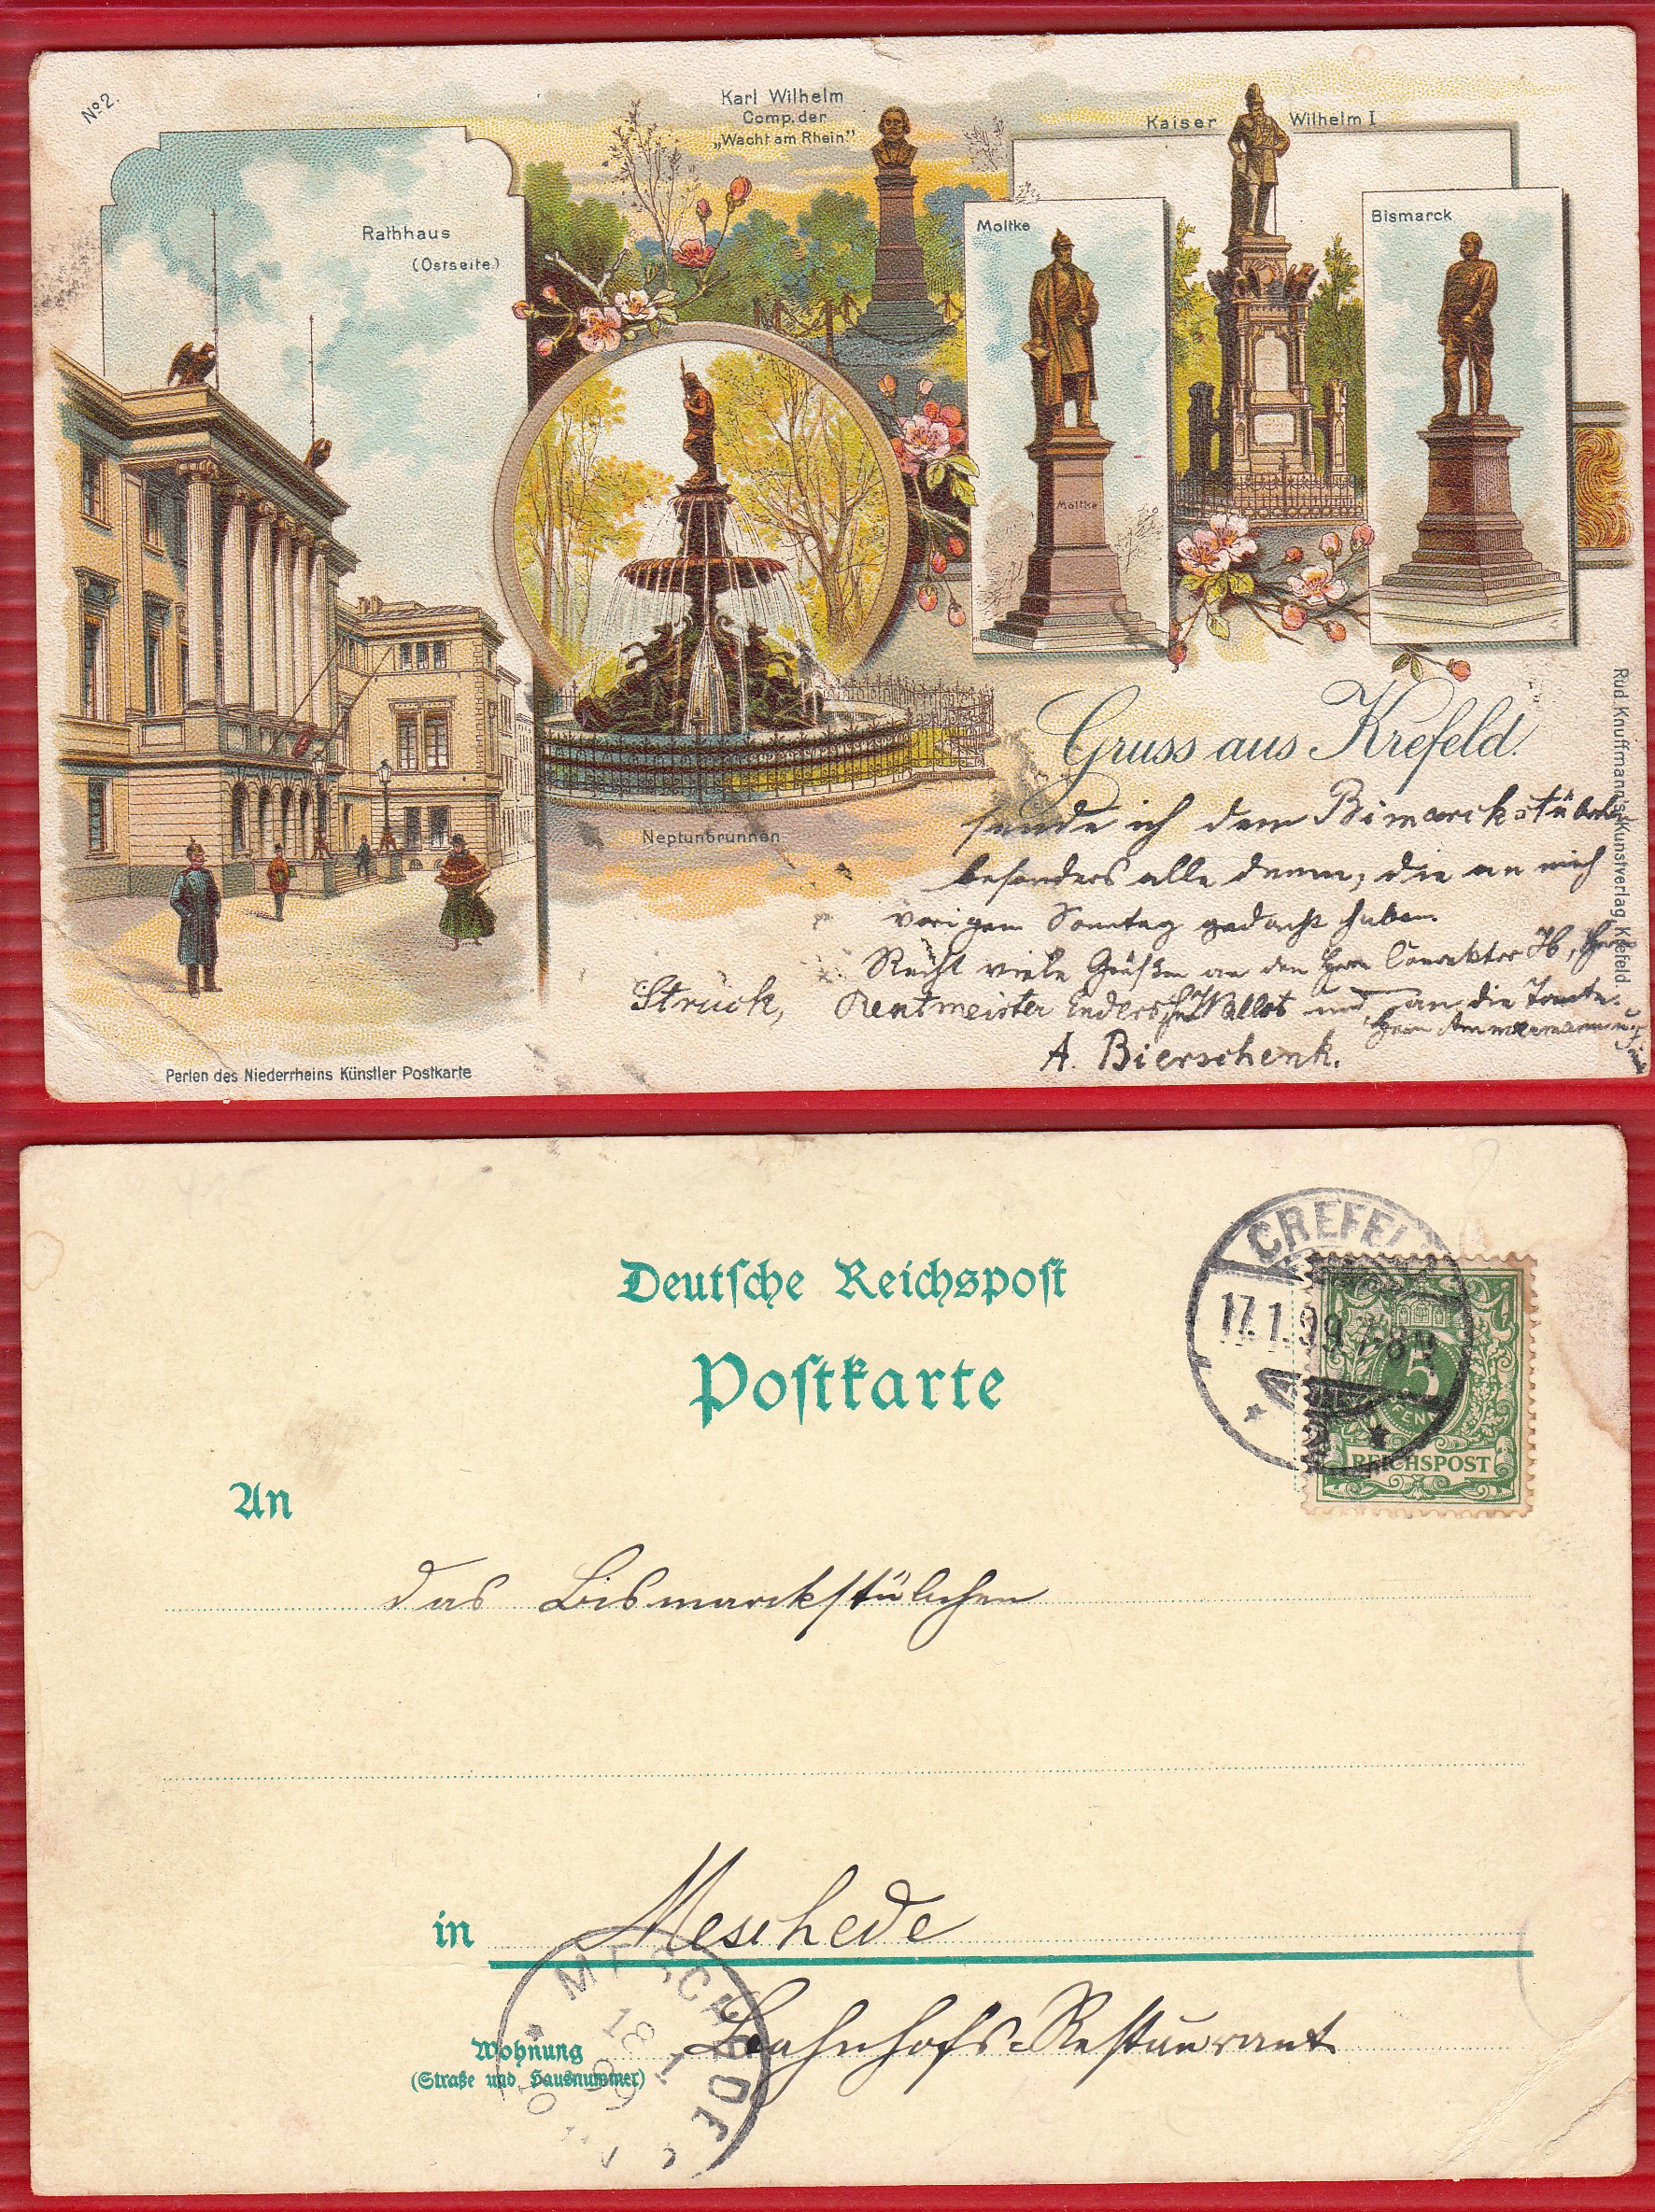 No 2.
Karl Wilhelm
Comp. der
„Wacht am Rhein"
Kaiser Wilhelm I
Rathhaus
(Ostseite.)
Moltke
Bismarck
Moltke
Neptunbrunnen
Gruss aus Krefeld.
sende ich dem Bismarckstübchen
besonders alle denen, die an mich
vorigem Sonntag gedacht haben.
Recht viele Grüßen an den Herrn
Struck, Rentmeister Enders, Wallot und an die Tante.
Herrn
A. Bierschenk.
Perlen des Niederrheins Künstler Postkarte
Rud Knuffmann's Kunstverlag, Krefeld.
Deutsche Reichspost
Postkarte
CREFELD
17.1.99.7-8N.
5
REICHSPOST
An
das Bismarckstübchen
in Meschede
Bahnhofs-Restaurant
Wohnung
(Straße und Hausnummer)
MESCHEDE
18
1
99